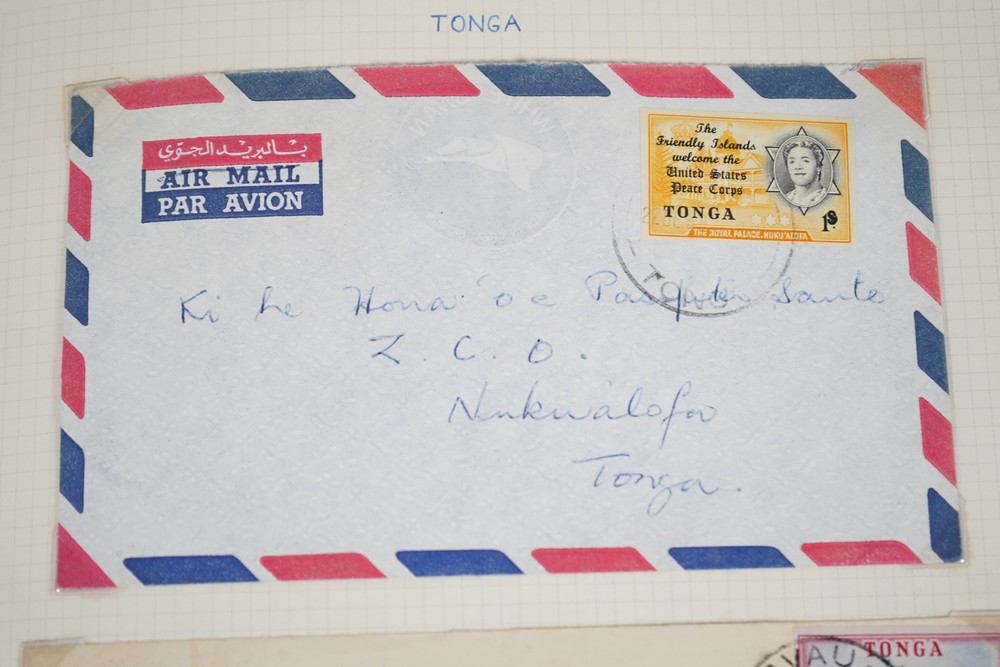 TONGA
بالبريد الجوّي
AIR MAIL
PAR AVION
The
Friendly Islands
welcome the
United States
Peace Corps
TONGA
1s
THE ROYAL PALACE, NUKU'ALOFA
TONG
Ki he Hona 'o e
Z. C. O.
Nukualofa
Tonga.
VAVAU
TONGA